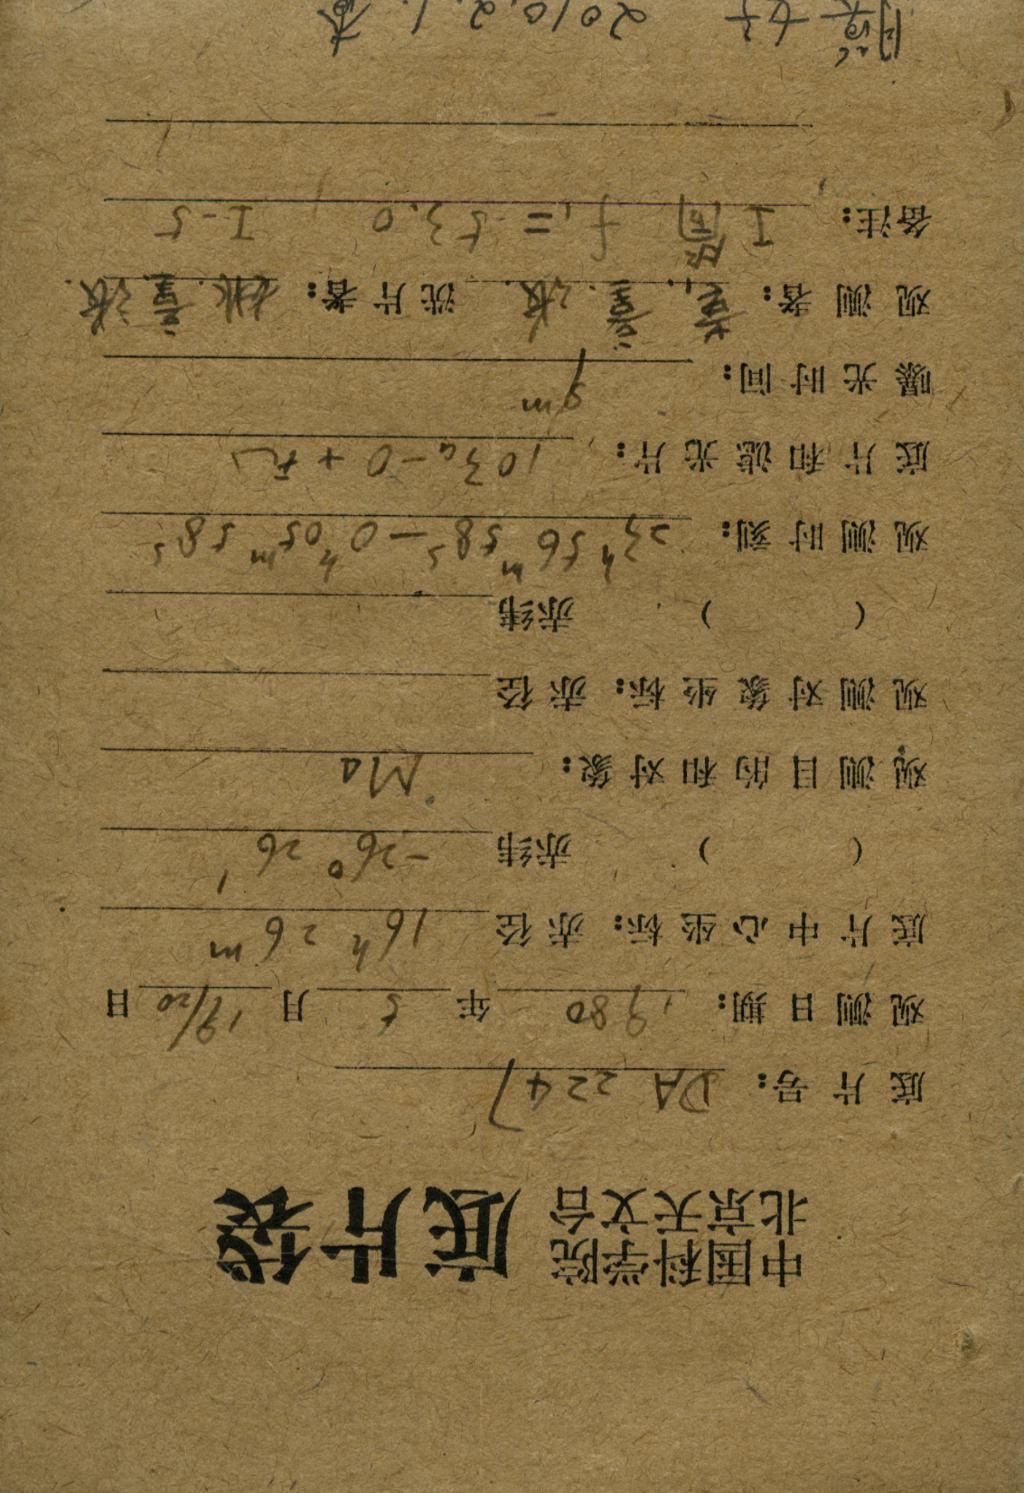 中国科学院
北京天文台 底片袋
底片号: DA 2247
观测日期: 1980 年 5 月 19/20 日
底片中心坐标: 赤径 16h 26m
( ) 赤纬 -26° 26'
观测目的和对象: Ma
观测对象坐标: 赤径
( ) 赤纬
观测时刻: 23h 56m 58s — 0h 05m 58s
底片和滤光片: 103a-O +
曝光时间: 9m
观测者: 洗片者:
备注: I 筒 f1 = 53.0, I-5
2010.2.1.